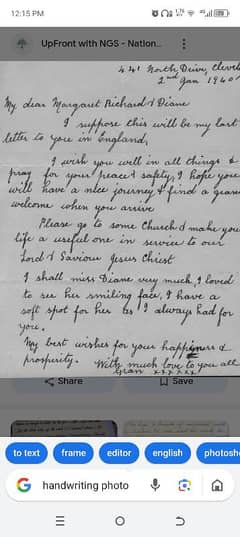 12:15 PM
UpFront with NGS - Nation...
441 North Drive, Clevel
2nd Jan 1940
My dear Margaret Richard & Diane
I suppose this will be my last
letter to you in England,
I wish you well in all things &
pray for your peace & safety, I hope you
will have a nice journey & find a grand
welcome when you arrive
Please go to some Church & make you
life a useful one in service to our
Lord & Saviour Jesus Christ
I shall miss Diane very much, I loved
to see her smiling face, I have a
soft spot for her as I always had for
you.
My best wishes for your happiness &
prosperity. With much love to you all
Gran xxxxxx
Share
Save
to text
frame
editor
english
photosh
handwriting photo